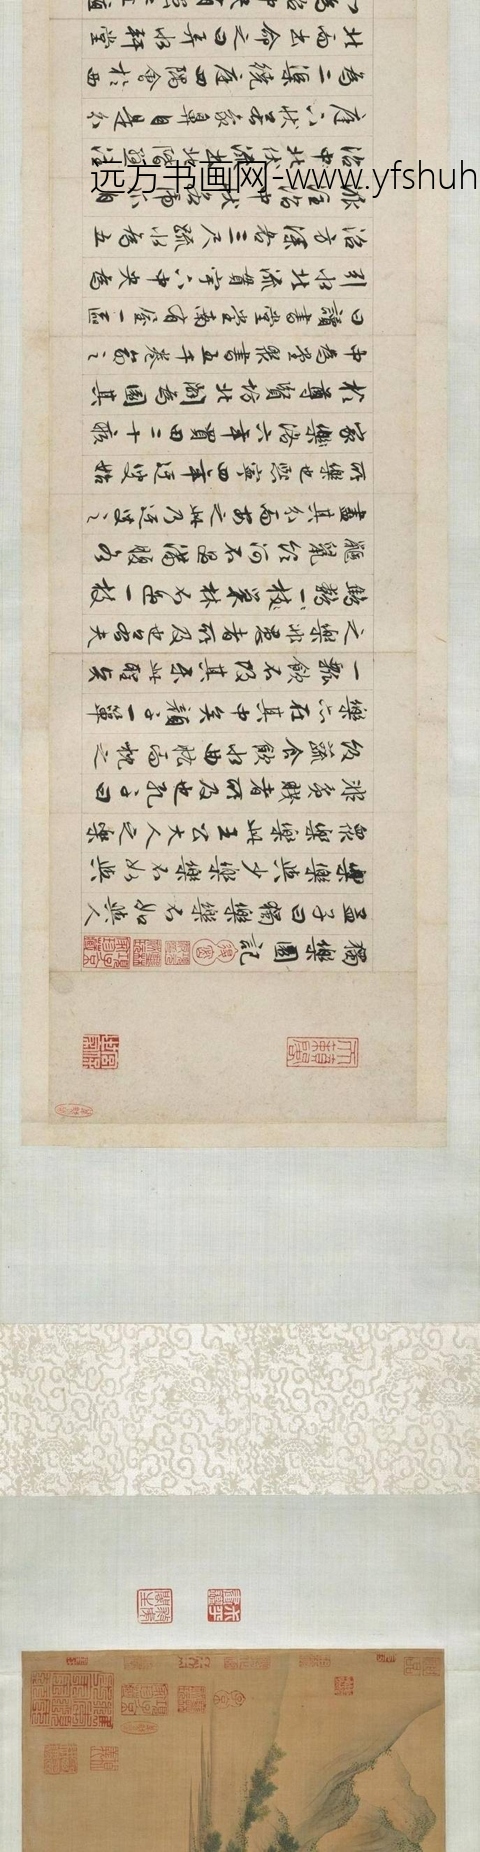 獨樂園記
孟子曰獨樂樂不如與人
樂樂與少樂樂不如與
衆樂樂此王公大人之樂
非貧賤者所及也孔子曰
飯蔬食飲水曲肱而枕之
樂亦在其中矣顏子一簞
一瓢飲不改其樂此聖賢
之樂非愚者所及也若夫
鷦鷯巢林不過一枝
鼴鼠飲河不過滿腹各
盡其分而安之此乃迂叟之
所樂也熙寧四年迂叟始
家洛六年買田二十畝
於尊賢坊北關為園其
中為堂聚書五千卷命之
曰讀書堂堂南有屋一區
引水北流貫宇下中央為
沼方深各三尺疏水為五
派注沼中狀若虎爪自
沼北伏流出北階懸注
庭下狀若象鼻自是分
為二渠繞庭四隅會於西
北而出命之曰弄水軒堂
远方书画网-www.yfshuh